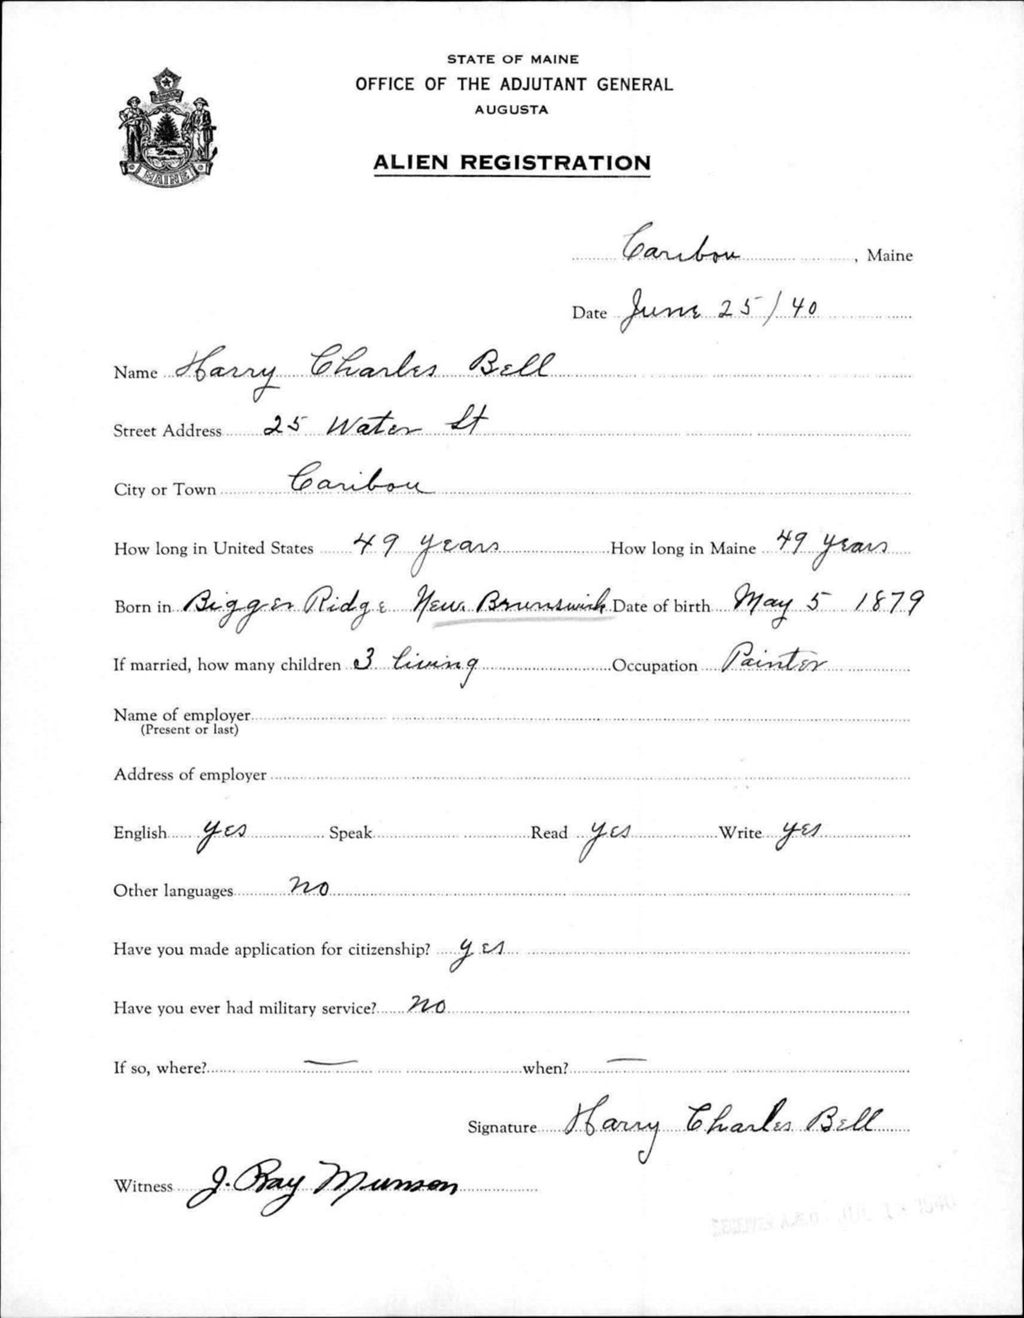 STATE OF MAINE
OFFICE OF THE ADJUTANT GENERAL
AUGUSTA
MAINE
ALIEN REGISTRATION
Caribou, Maine
Date June 25/40
Name Harry Charles Bell
Street Address 25 Water St
City or Town Caribou
How long in United States 49 years How long in Maine 49 years
Born in Bigger Ridge New Brunswick Date of birth May 5 1879
If married, how many children 3 living Occupation Painter
Name of employer
(Present or last)
Address of employer
English yes Speak Read yes Write yes
Other languages no
Have you made application for citizenship? yes
Have you ever had military service? no
If so, where? — when? —
Signature Harry Charles Bell
Witness J. Ray Munson